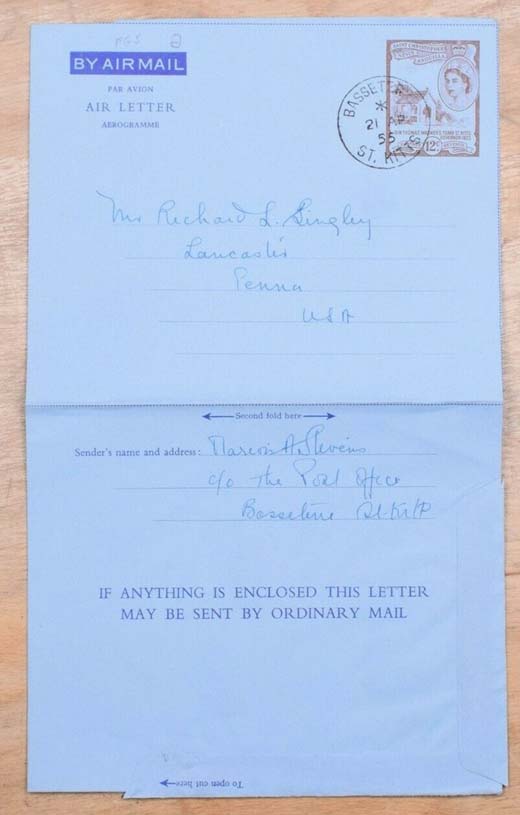 BY AIR MAIL
PAR AVION
AIR LETTER
AEROGRAMME
SAINT CHRISTOPHER
NEVIS
ANGUILLA
BASSETERRE
21 AP
55
ST. KITTS
12c
Mr Richard L. Singley
Lancaster
Penna
USA
Second fold here
Sender's name and address: Marion A. Stevens
c/o The Post Office
Basseterre St. Kitts
IF ANYTHING IS ENCLOSED THIS LETTER
MAY BE SENT BY ORDINARY MAIL
To open cut here